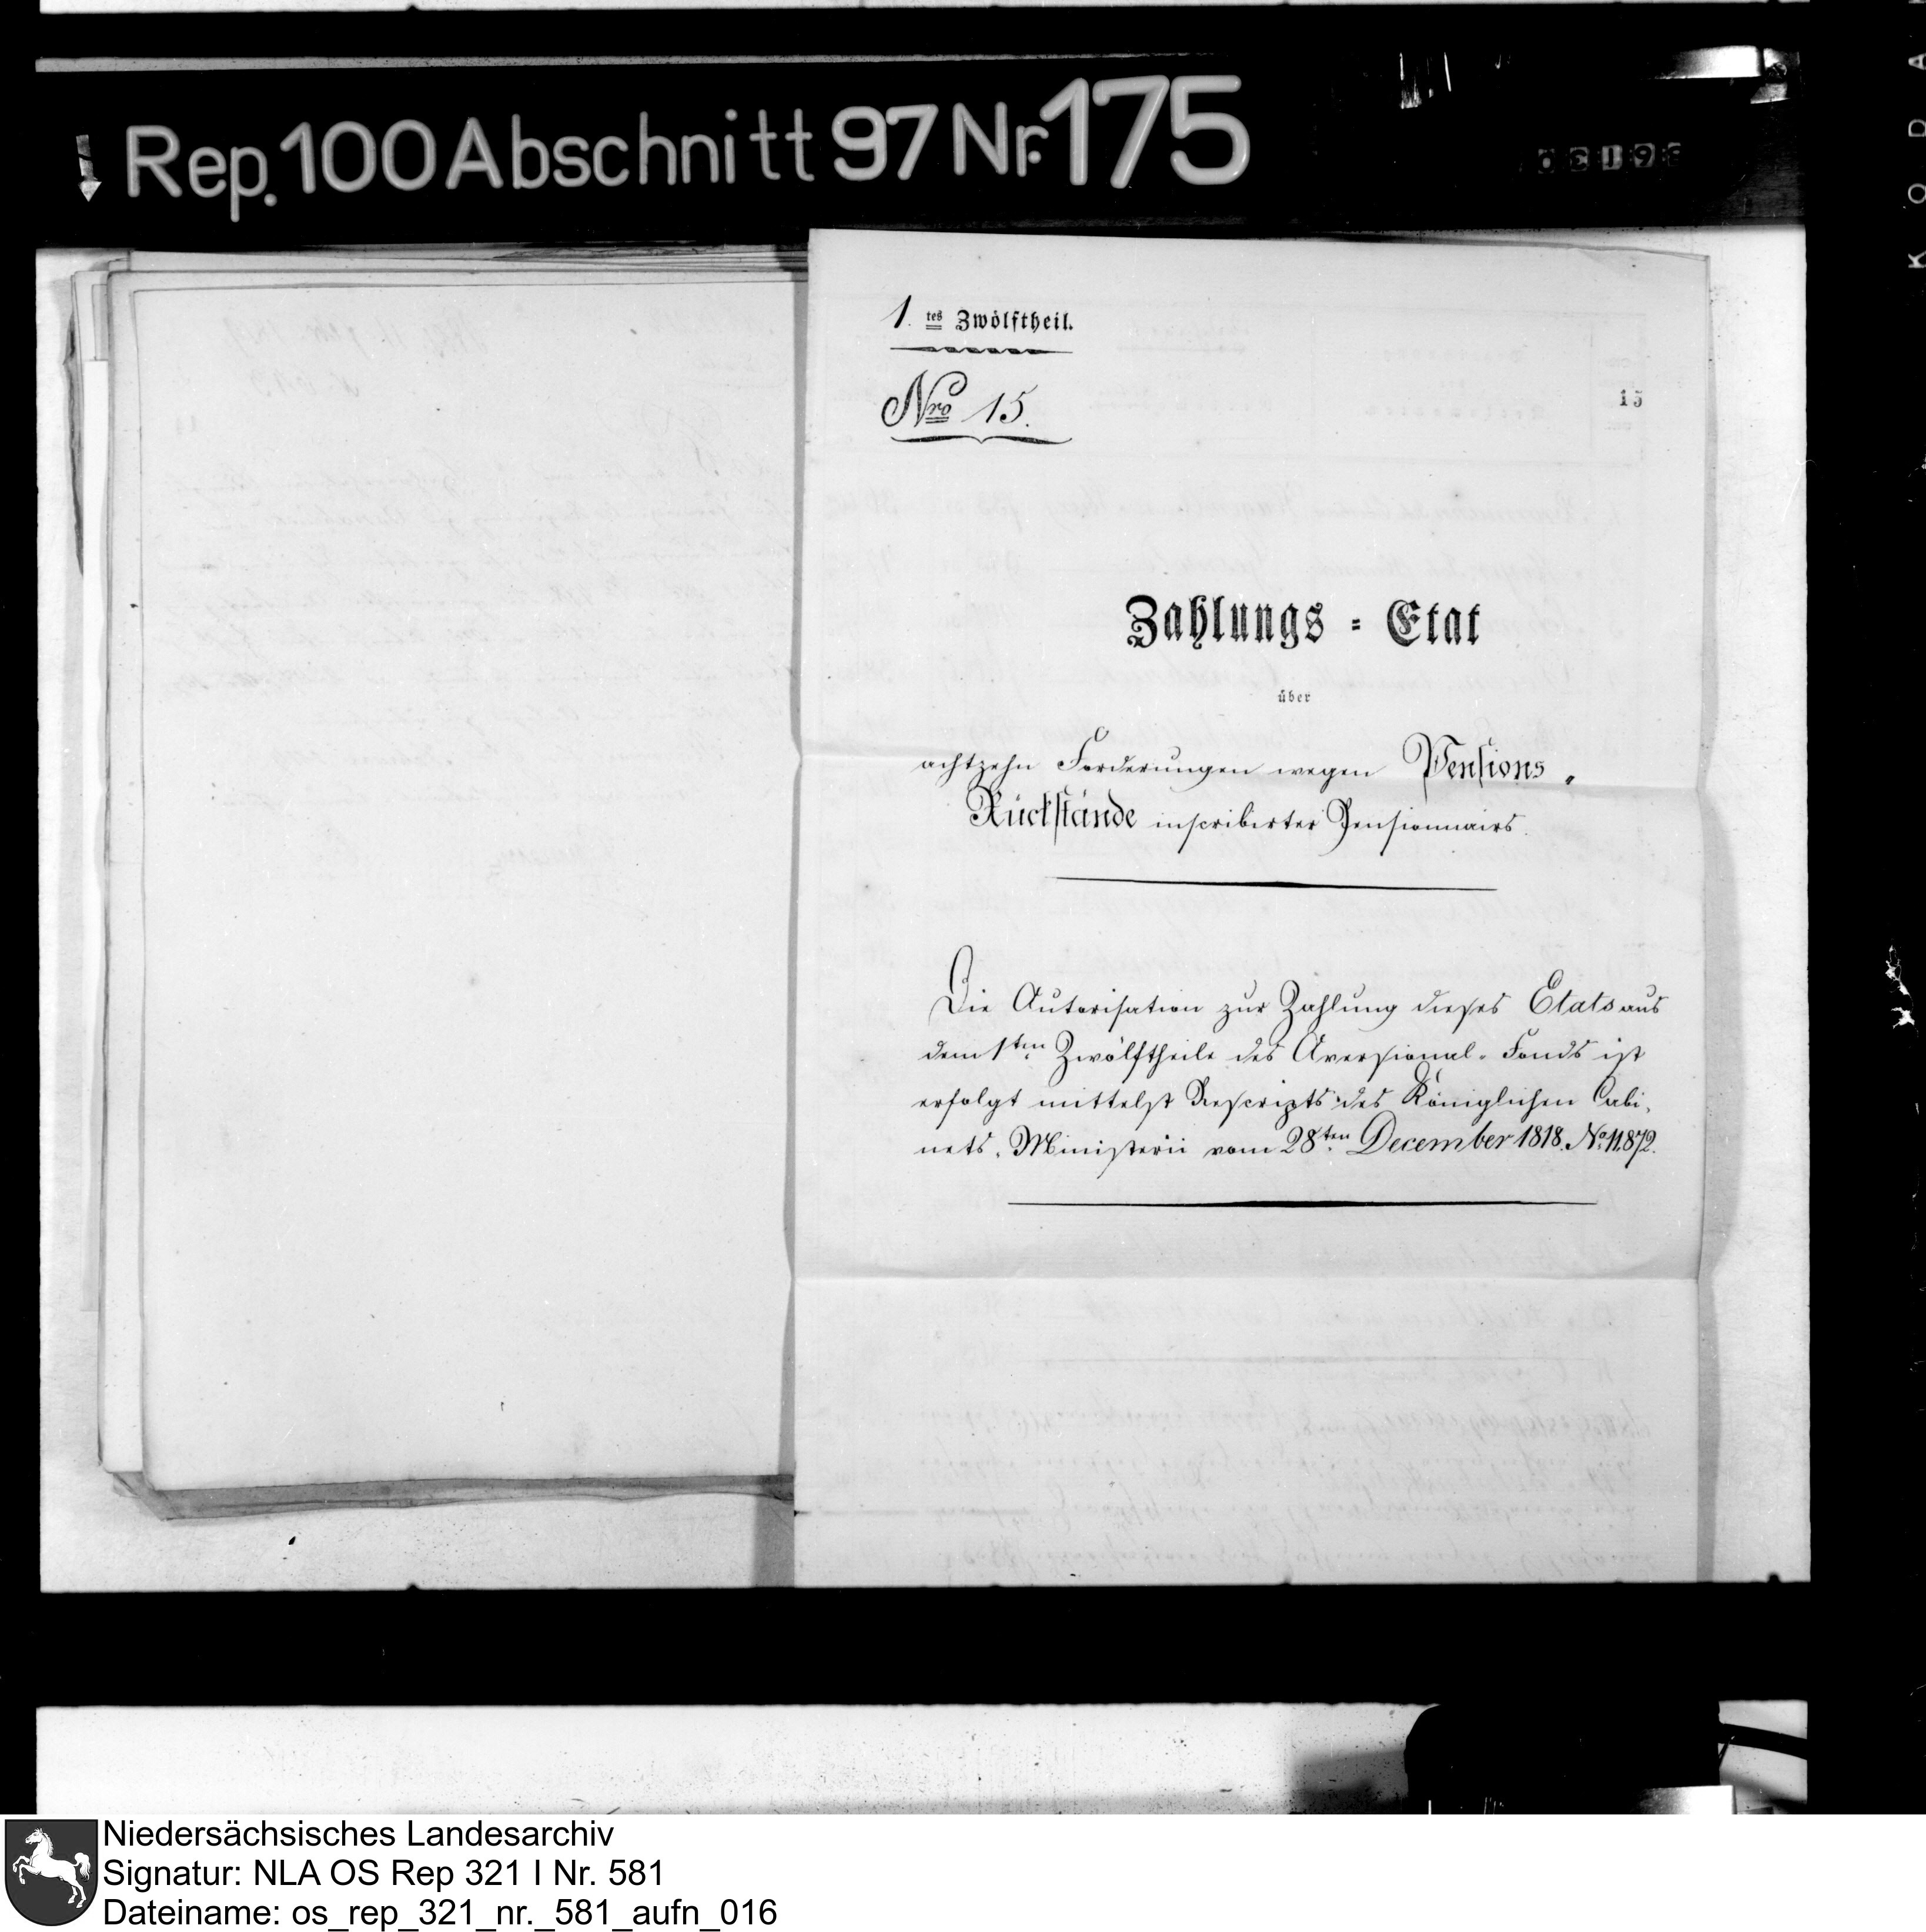 Rep. 100 Abschnitt 97 Nr. 175
1. tes Zwölftheil.
Nro 15.
15
Zahlungs = Etat
über
achtzehn Forderungen wegen Pensions-
Rückstände inscribirter Pensionnairs.
Die Autorisation zur Zahlung dieses Etats aus
dem 1ten Zwölftheile des Aversional-Fonds ist
erfolgt mittelst Rescripts des Königlichen Cabi-
nets-Ministerii vom 28ten December 1818. No. 11,872.
KODA
Niedersächsisches Landesarchiv
Signatur: NLA OS Rep 321 I Nr. 581
Dateiname: os_rep_321_nr._581_aufn_016